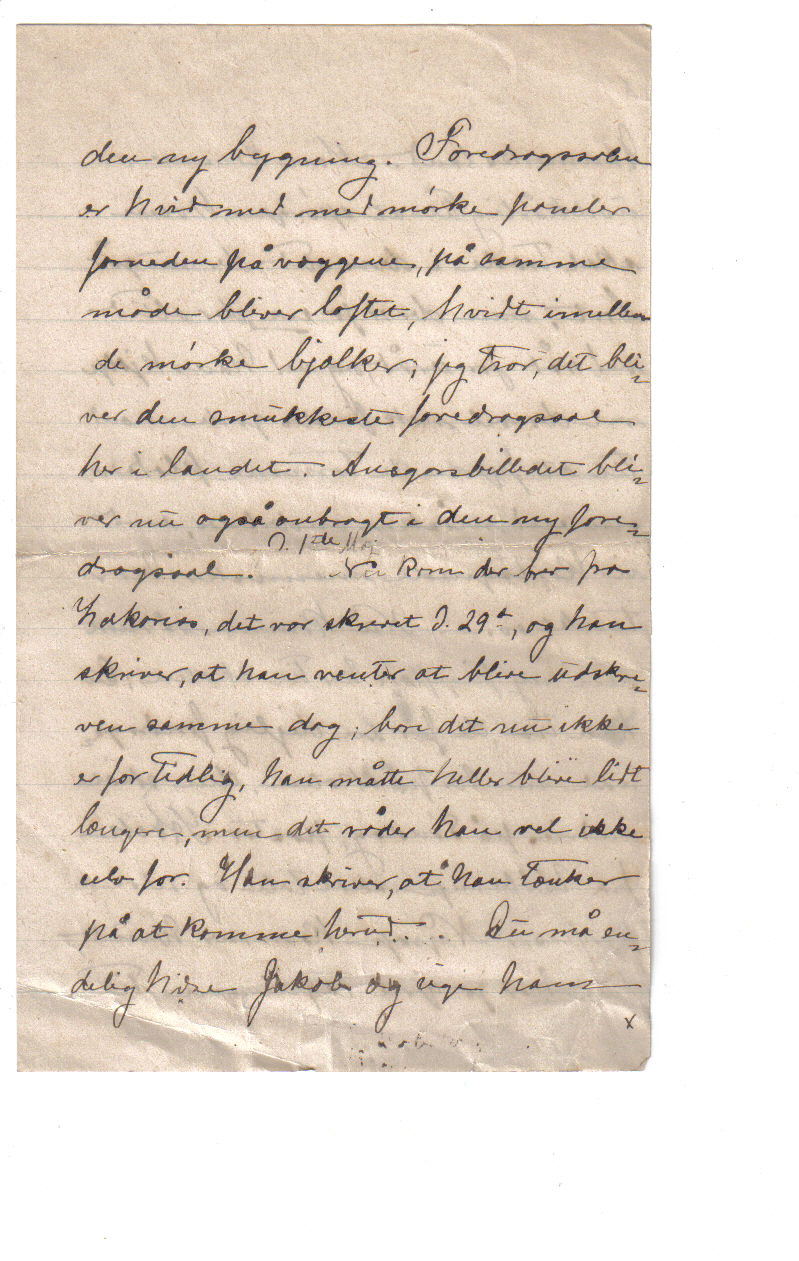 den ny bygning. Foredragssalen
er hvid med med mørke paneler
forneden på væggene, på samme
måde bliver loftet, hvidt imellem
de mørke bjælker, jeg tror, det bli=
ver den smukkeste foredragssal
her i landet. Ansgarsbilledet bli=
ver nu også anbragt i den ny fore=
D. 1ste Maj
dragssal. Nu kom der brev fra
Zakarias, det var skrevet d. 29d, og han
skriver, at han venter at blive udskre=
ven samme dag, bare det nu ikke
er for tidlig, han måtte heller blive lidt
længere, men det råder han vel ikke
selv for. Han skriver, at han tænker
på at komme herud... Du må en=
delig hilse Jakob og sige ham
x